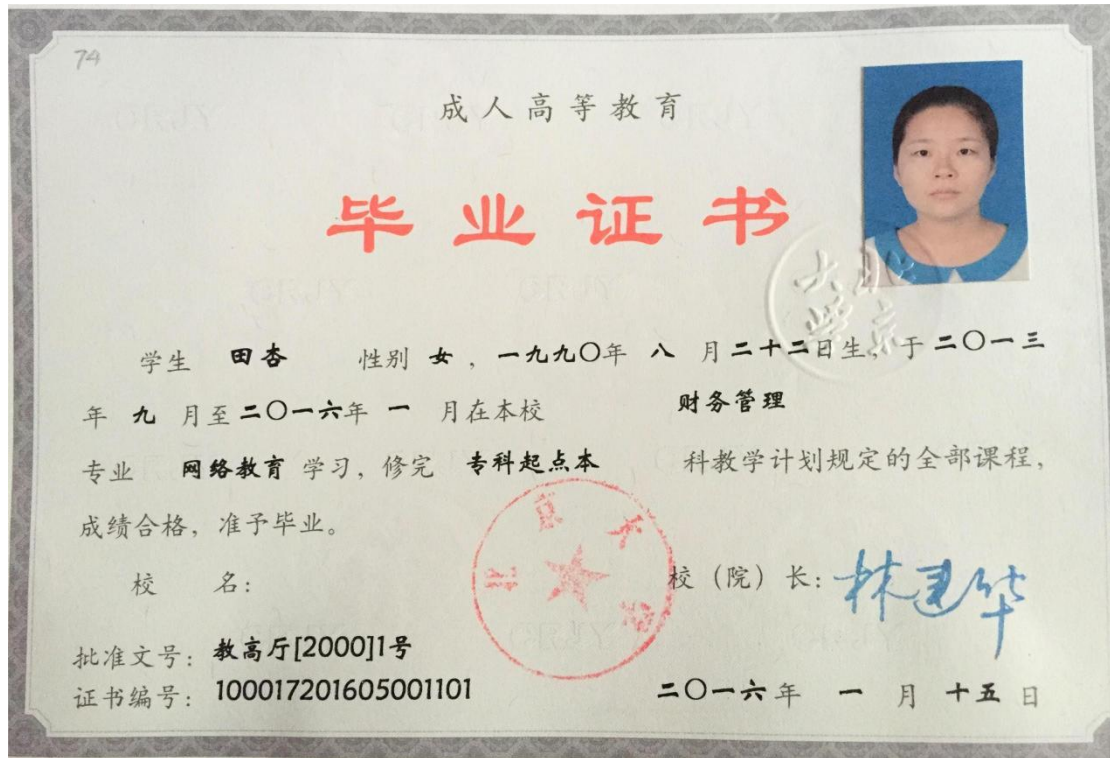 74
成人高等教育
毕业证书
大北
学京
学生 田杏 性别 女 ，一九九〇年 八 月二十二日生，于 二〇一三
年 九 月至 二〇一六年 一 月在本校 财务管理
专业 网络教育 学习，修完 专科起点本 科教学计划规定的全部课程，
成绩合格，准予毕业。
北京大学
校 名： 校（院）长：林建华
批准文号：教高厅[2000]1号
证书编号：100017201605001101 二〇一六年 一 月 十五 日